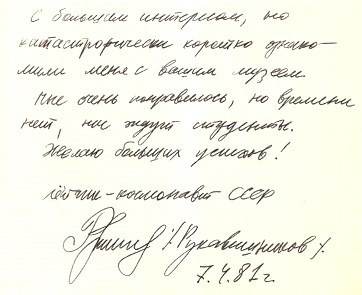 С большим интересом, но
катастрофически коротко ознако-
мили меня с вашим музеем.
Мне очень понравилось, но времени
нет, нас ждут студенты.
Желаю больших успехов!
Лётчик-космонавт СССР
/Рукавишников/.
7.4.81 г.